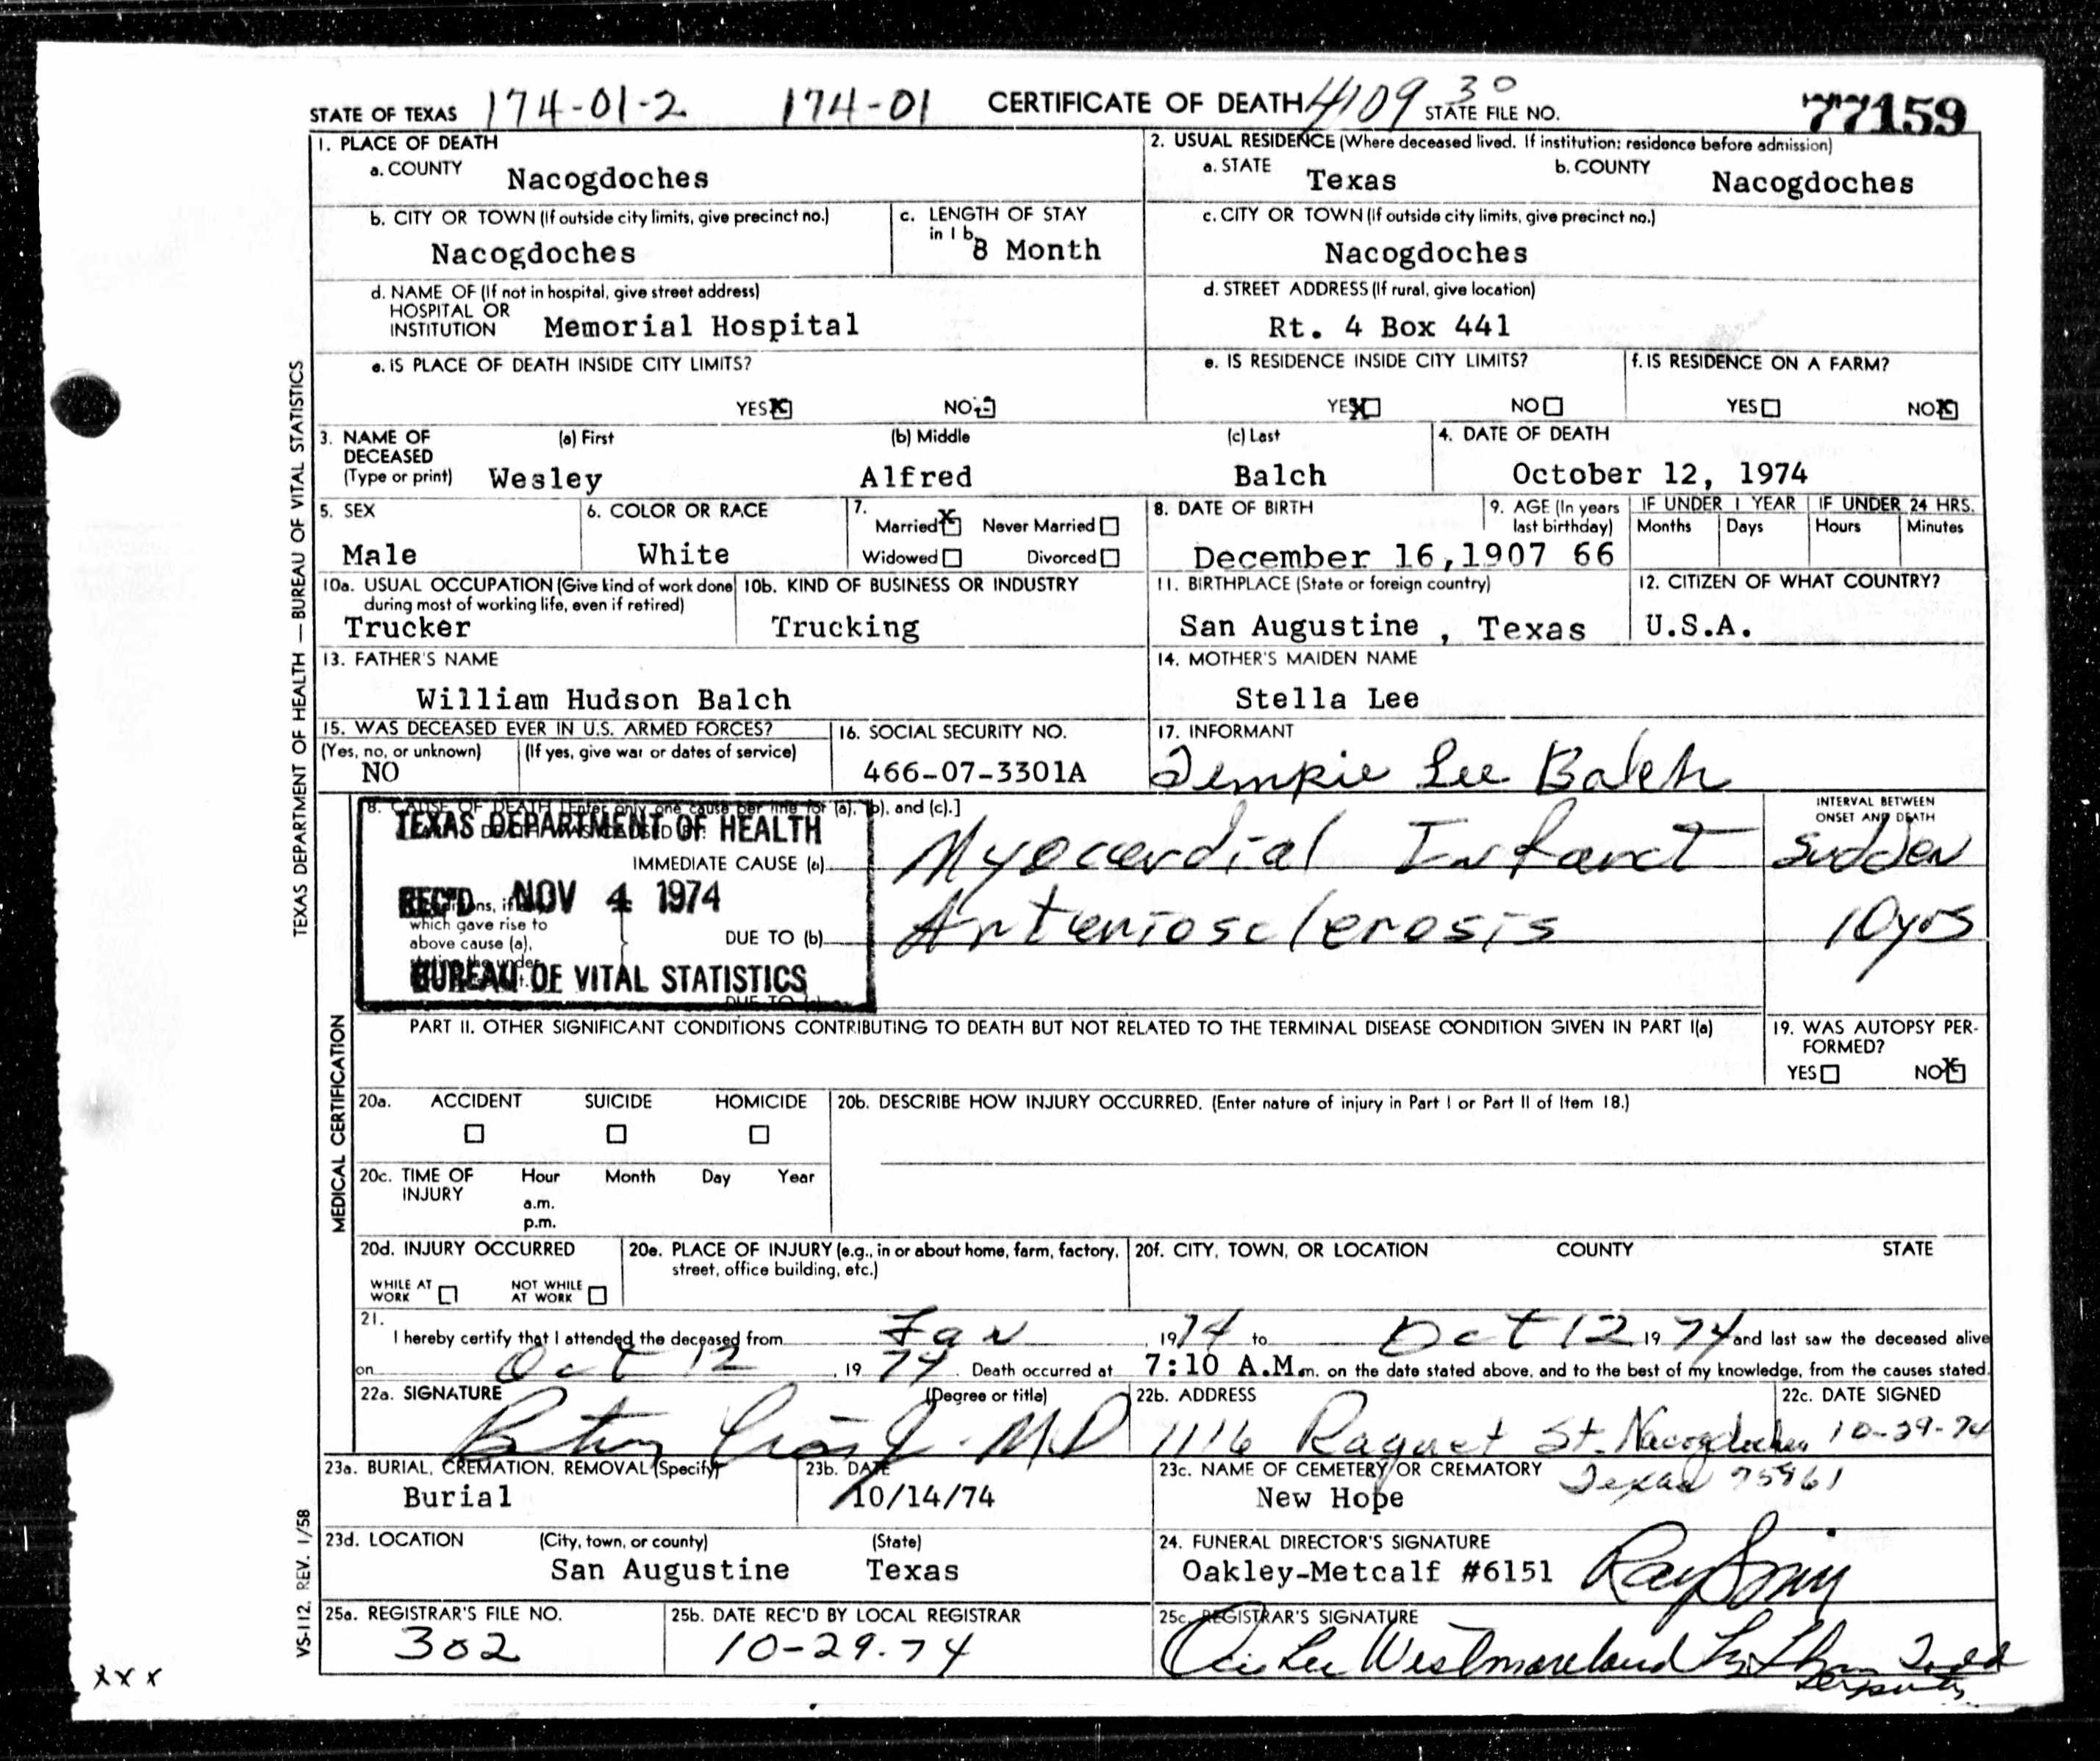 STATE OF TEXAS 174-01-2 174-01 CERTIFICATE OF DEATH 4109 30 STATE FILE NO. 77159
1. PLACE OF DEATH
a. COUNTY Nacogdoches
2. USUAL RESIDENCE (Where deceased lived. If institution: residence before admission)
a. STATE Texas b. COUNTY Nacogdoches
b. CITY OR TOWN (If outside city limits, give precinct no.)
Nacogdoches
c. LENGTH OF STAY
in 1 b.
8 Month
c. CITY OR TOWN (If outside city limits, give precinct no.)
Nacogdoches
d. NAME OF (If not in hospital, give street address)
HOSPITAL OR
INSTITUTION Memorial Hospital
d. STREET ADDRESS (If rural, give location)
Rt. 4 Box 441
e. IS PLACE OF DEATH INSIDE CITY LIMITS?
YES X NO
e. IS RESIDENCE INSIDE CITY LIMITS?
YES X NO
f. IS RESIDENCE ON A FARM?
YES NO X
3. NAME OF
DECEASED
(Type or print)
(a) First (b) Middle (c) Last
Wesley Alfred Balch
4. DATE OF DEATH
October 12, 1974
5. SEX
Male
6. COLOR OR RACE
White
7.
Married X Never Married
Widowed Divorced
8. DATE OF BIRTH
December 16,1907
9. AGE (In years
last birthday)
66
IF UNDER 1 YEAR
Months Days
IF UNDER 24 HRS.
Hours Minutes
10a. USUAL OCCUPATION (Give kind of work done
during most of working life, even if retired)
Trucker
10b. KIND OF BUSINESS OR INDUSTRY
Trucking
11. BIRTHPLACE (State or foreign country)
San Augustine , Texas
12. CITIZEN OF WHAT COUNTRY?
U.S.A.
13. FATHER'S NAME
William Hudson Balch
14. MOTHER'S MAIDEN NAME
Stella Lee
15. WAS DECEASED EVER IN U.S. ARMED FORCES?
(Yes, no, or unknown) (If yes, give war or dates of service)
NO
16. SOCIAL SECURITY NO.
466-07-3301A
17. INFORMANT
Tempie Lee Balch
18. CAUSE OF DEATH [Enter only one cause per line for (a), (b), and (c).]
TEXAS DEPARTMENT OF HEALTH
REC'D NOV 4 1974
BUREAU OF VITAL STATISTICS
IMMEDIATE CAUSE (a) Myocardial Infarct
INTERVAL BETWEEN
ONSET AND DEATH
sudden
which gave rise to
above cause (a),
DUE TO (b) Arteriosclerosis 10yrs
DUE TO
PART II. OTHER SIGNIFICANT CONDITIONS CONTRIBUTING TO DEATH BUT NOT RELATED TO THE TERMINAL DISEASE CONDITION GIVEN IN PART I(a)
19. WAS AUTOPSY PER-
FORMED?
YES NO X
20a. ACCIDENT SUICIDE HOMICIDE
20b. DESCRIBE HOW INJURY OCCURRED. (Enter nature of injury in Part I or Part II of Item 18.)
20c. TIME OF
INJURY
Hour Month Day Year
a.m.
p.m.
20d. INJURY OCCURRED
WHILE AT
WORK
NOT WHILE
AT WORK
20e. PLACE OF INJURY (e.g., in or about home, farm, factory,
street, office building, etc.)
20f. CITY, TOWN, OR LOCATION COUNTY STATE
21.
I hereby certify that I attended the deceased from Jan , 1974 to Oct 12 1974 and last saw the deceased alive
on Oct 12 , 19 74 . Death occurred at 7:10 A.M.m. on the date stated above, and to the best of my knowledge, from the causes stated.
22a. SIGNATURE (Degree or title)
MD
22b. ADDRESS
1116 Raguet St. Nacogdoches
Texas 75961
22c. DATE SIGNED
10-29-74
23a. BURIAL, CREMATION, REMOVAL (Specify)
Burial
23b. DATE
10/14/74
23c. NAME OF CEMETERY OR CREMATORY
New Hope
23d. LOCATION (City, town, or county) (State)
San Augustine Texas
24. FUNERAL DIRECTOR'S SIGNATURE
Oakley-Metcalf #6151 Ray
25a. REGISTRAR'S FILE NO.
302
25b. DATE REC'D BY LOCAL REGISTRAR
10-29-74
25c. REGISTRAR'S SIGNATURE
Lee Westmoreland Todd
TEXAS DEPARTMENT OF HEALTH — BUREAU OF VITAL STATISTICS
MEDICAL CERTIFICATION
VS-112, REV. 1/58
xxx